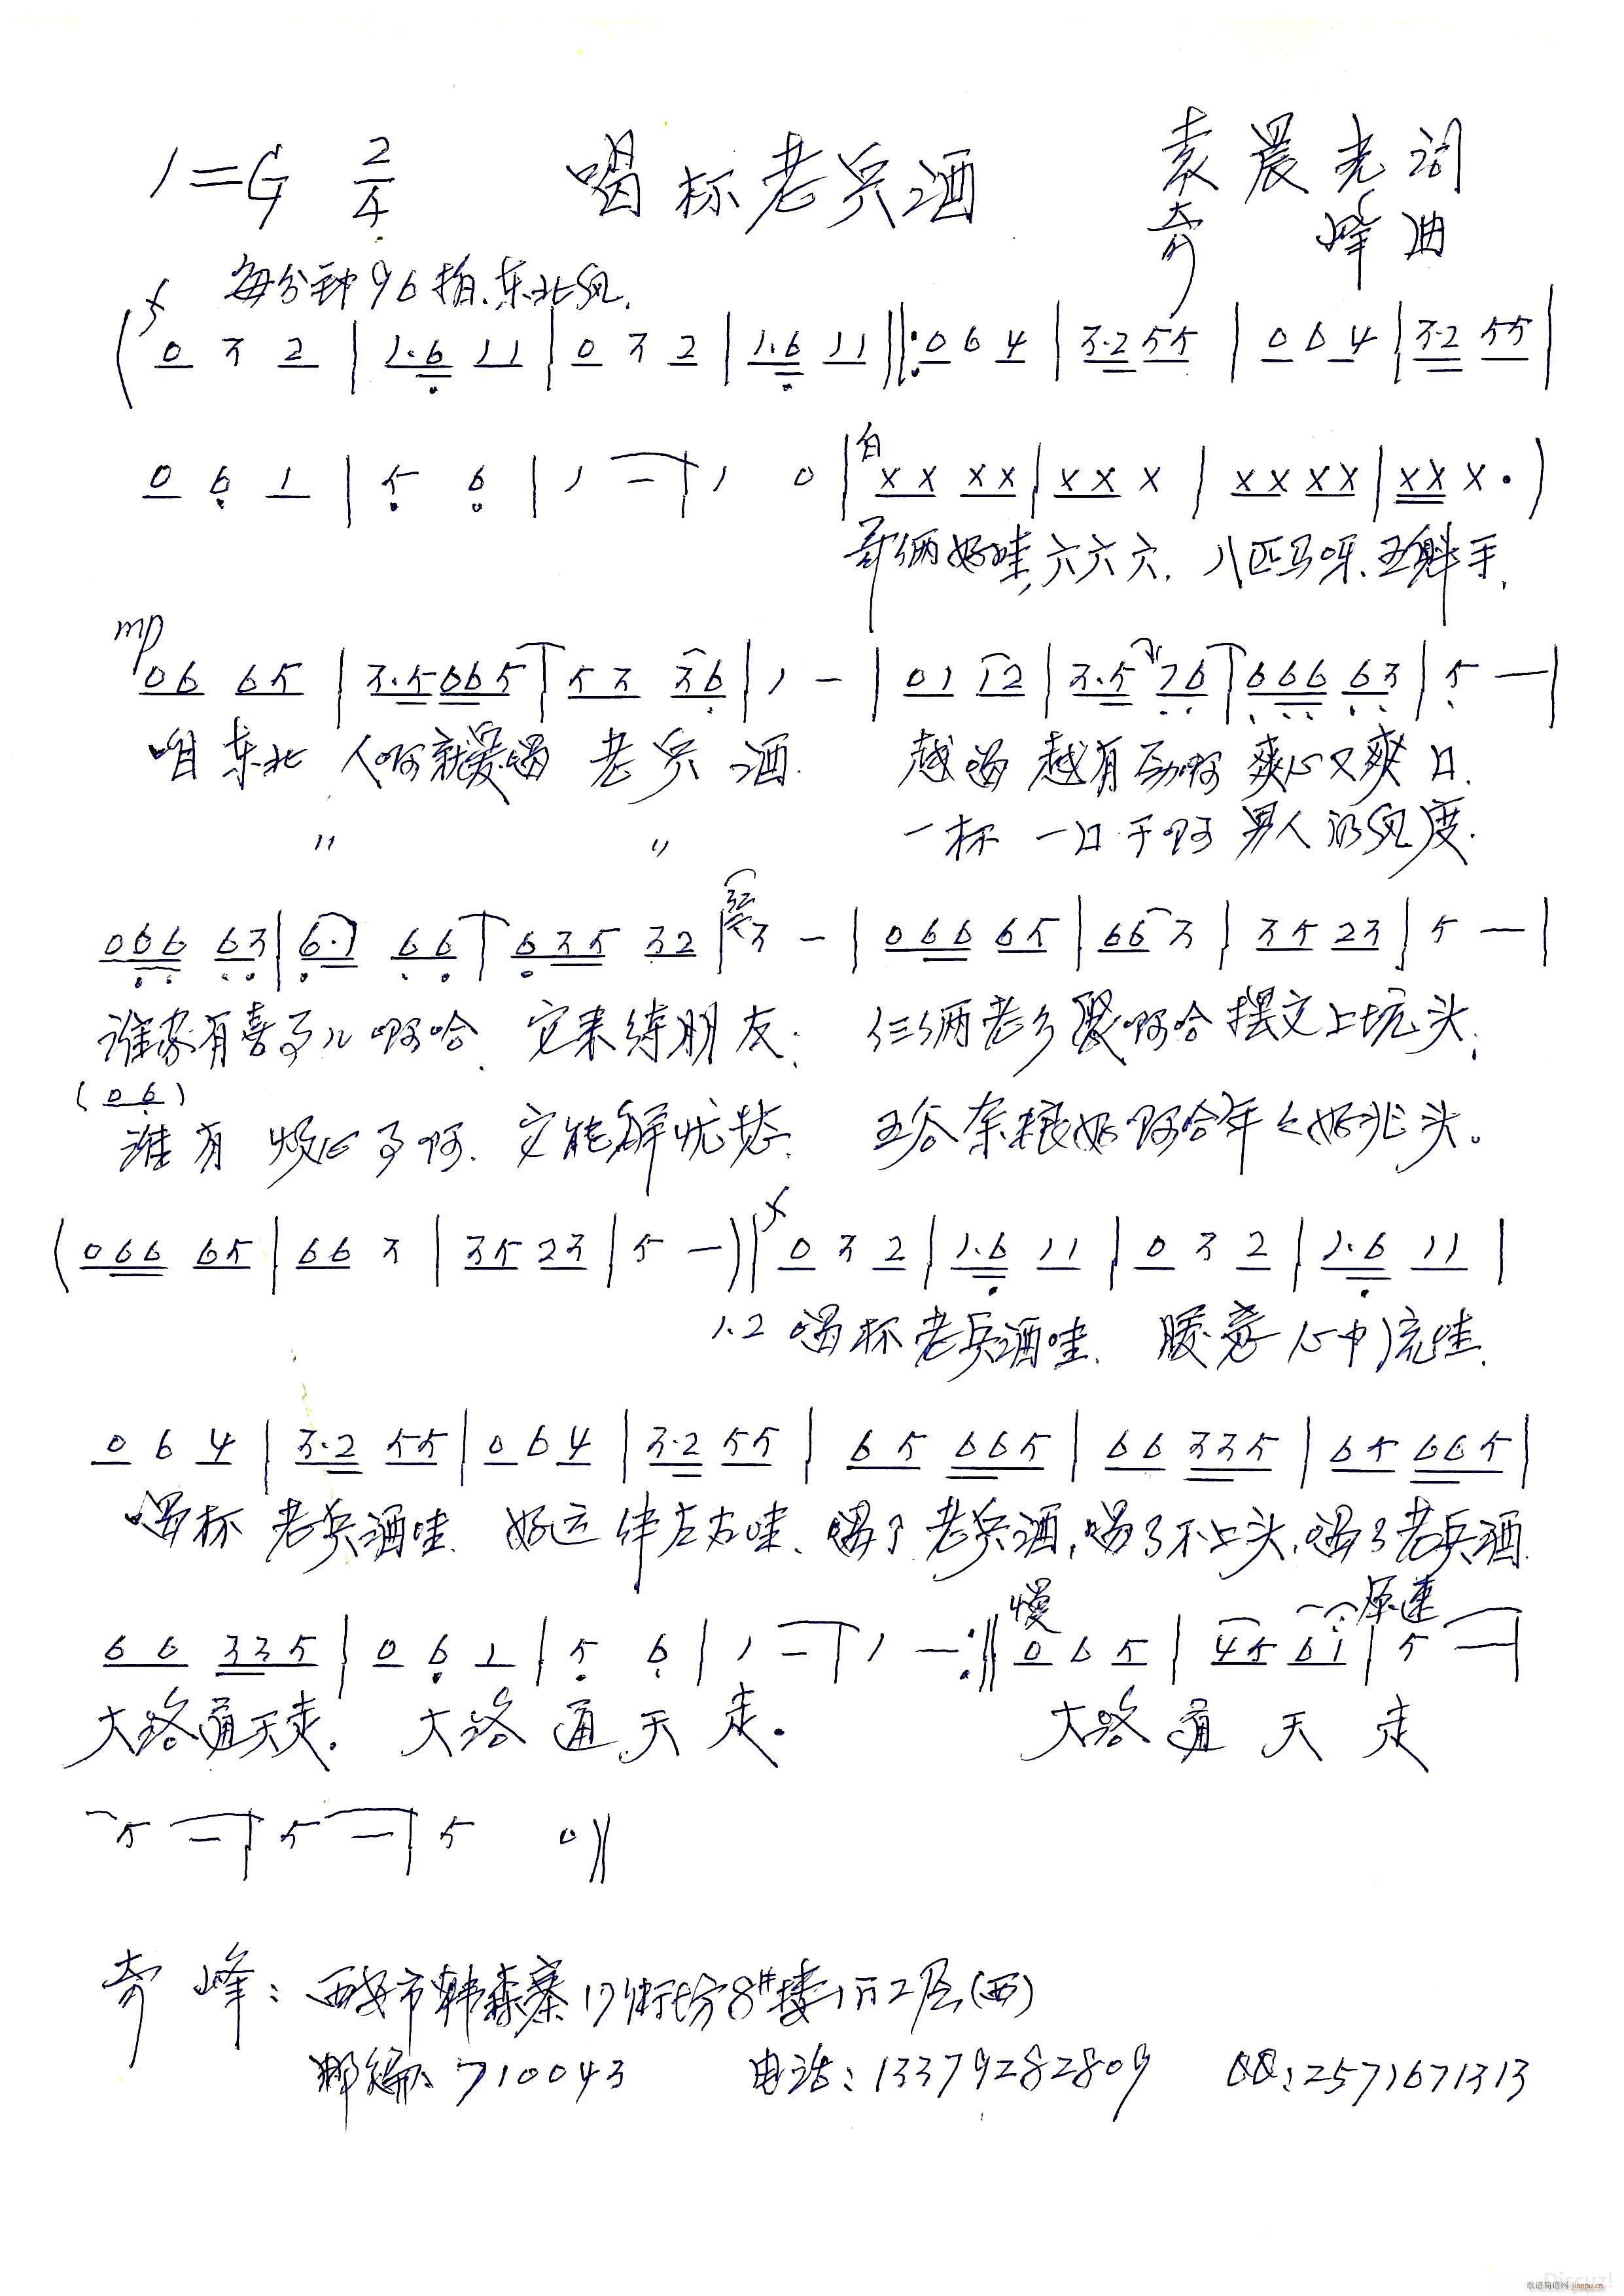 1=G 2/4 喝杯老兵酒 袁晨光词
奇峰曲
f 每分钟96拍.东北风.
( 0 3 2 | 1.6 11 | 0 3 2 | 1.6 11 ‖: 0 6 4 | 3.2 55 | 0 6 4 | 3.2 55 |
0 6 1 | 5 6 | 1 — | 1 0 | 白 XX XX | XX X | XX XX | XX X. )
哥俩好哇,六六六. 八匹马呀.五魁手.
mp
06 65 | 3.5 065 | 53 36 | 1 — | 01 12 | 3.5 76 | 666 63 | 5 — |
咱东北 人啊就爱喝 老兵酒. 越喝越有劲啊 爽心又爽口.
〃 〃 一杯 一口干啊 男人的风度.
066 63 | 6.1 66 | 635 32 | 323 — | 066 65 | 66 3 | 35 23 | 5 — |
谁家有喜事儿啊哈. 它来练朋友; 仨俩老乡聚啊哈摆文上坑头;
(06)
谁有 烦心事啊. 它能解忧愁. 五谷杂粮好啊哈年々好兆头。
( 066 65 | 66 3 | 35 23 | 5 — ) ‖ f 0 3 2 | 1.6 11 | 0 3 2 | 1.6 11 |
1.2 喝杯老兵酒哇. 暖意心中流哇.
0 6 4 | 3.2 55 | 0 6 4 | 3.2 55 | 65 665 | 66 335 | 65 665 |
喝杯 老兵酒哇. 好运伴左右哇、喝了老兵酒,喝了不上头,喝了老兵酒.
慢 原速
66 335 | 0 6 1 | 5 6 | 1 — | 1 — :‖ 0 6 5 | 45 61 | 5 — |
大路通天走. 大路通天走. 大路通天走
5 — | 5 — | 5 0 ‖
奇峰: 西安市韩森寨17街坊8#楼1门2层(西)
邮编: 710043 电话: 13379282809 QQ: 2571671313
歌谱简谱网 jianpu.cn